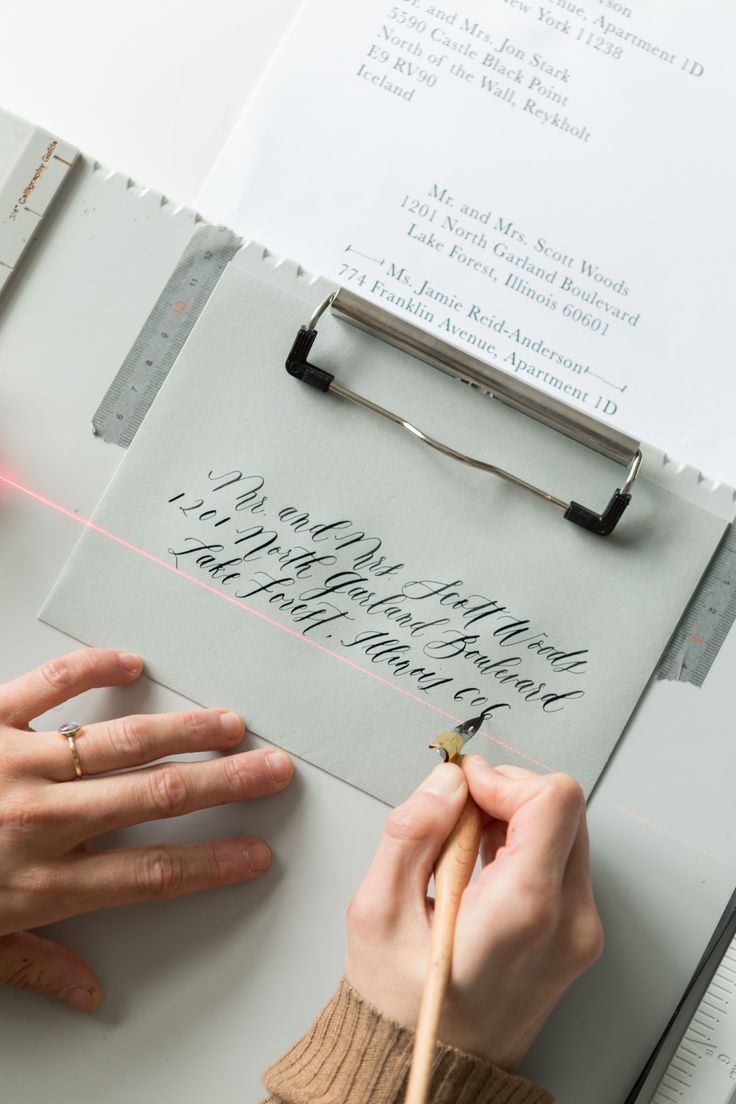 New York 11238
Avenue, Apartment 1D
Dr. and Mrs. Jon Stark
5590 Castle Black Point
North of the Wall, Reykholt
E9 RV90
Iceland
Mr. and Mrs. Scott Woods
1201 North Garland Boulevard
Lake Forest, Illinois 60601
Ms. Jamie Reid-Anderson
774 Franklin Avenue, Apartment 1D
3/4" Calligraphy Guide
12
10
9
8
7
6
Mr. and Mrs. Scott Woods
1201 North Garland Boulevard
Lake Forest, Illinois 606